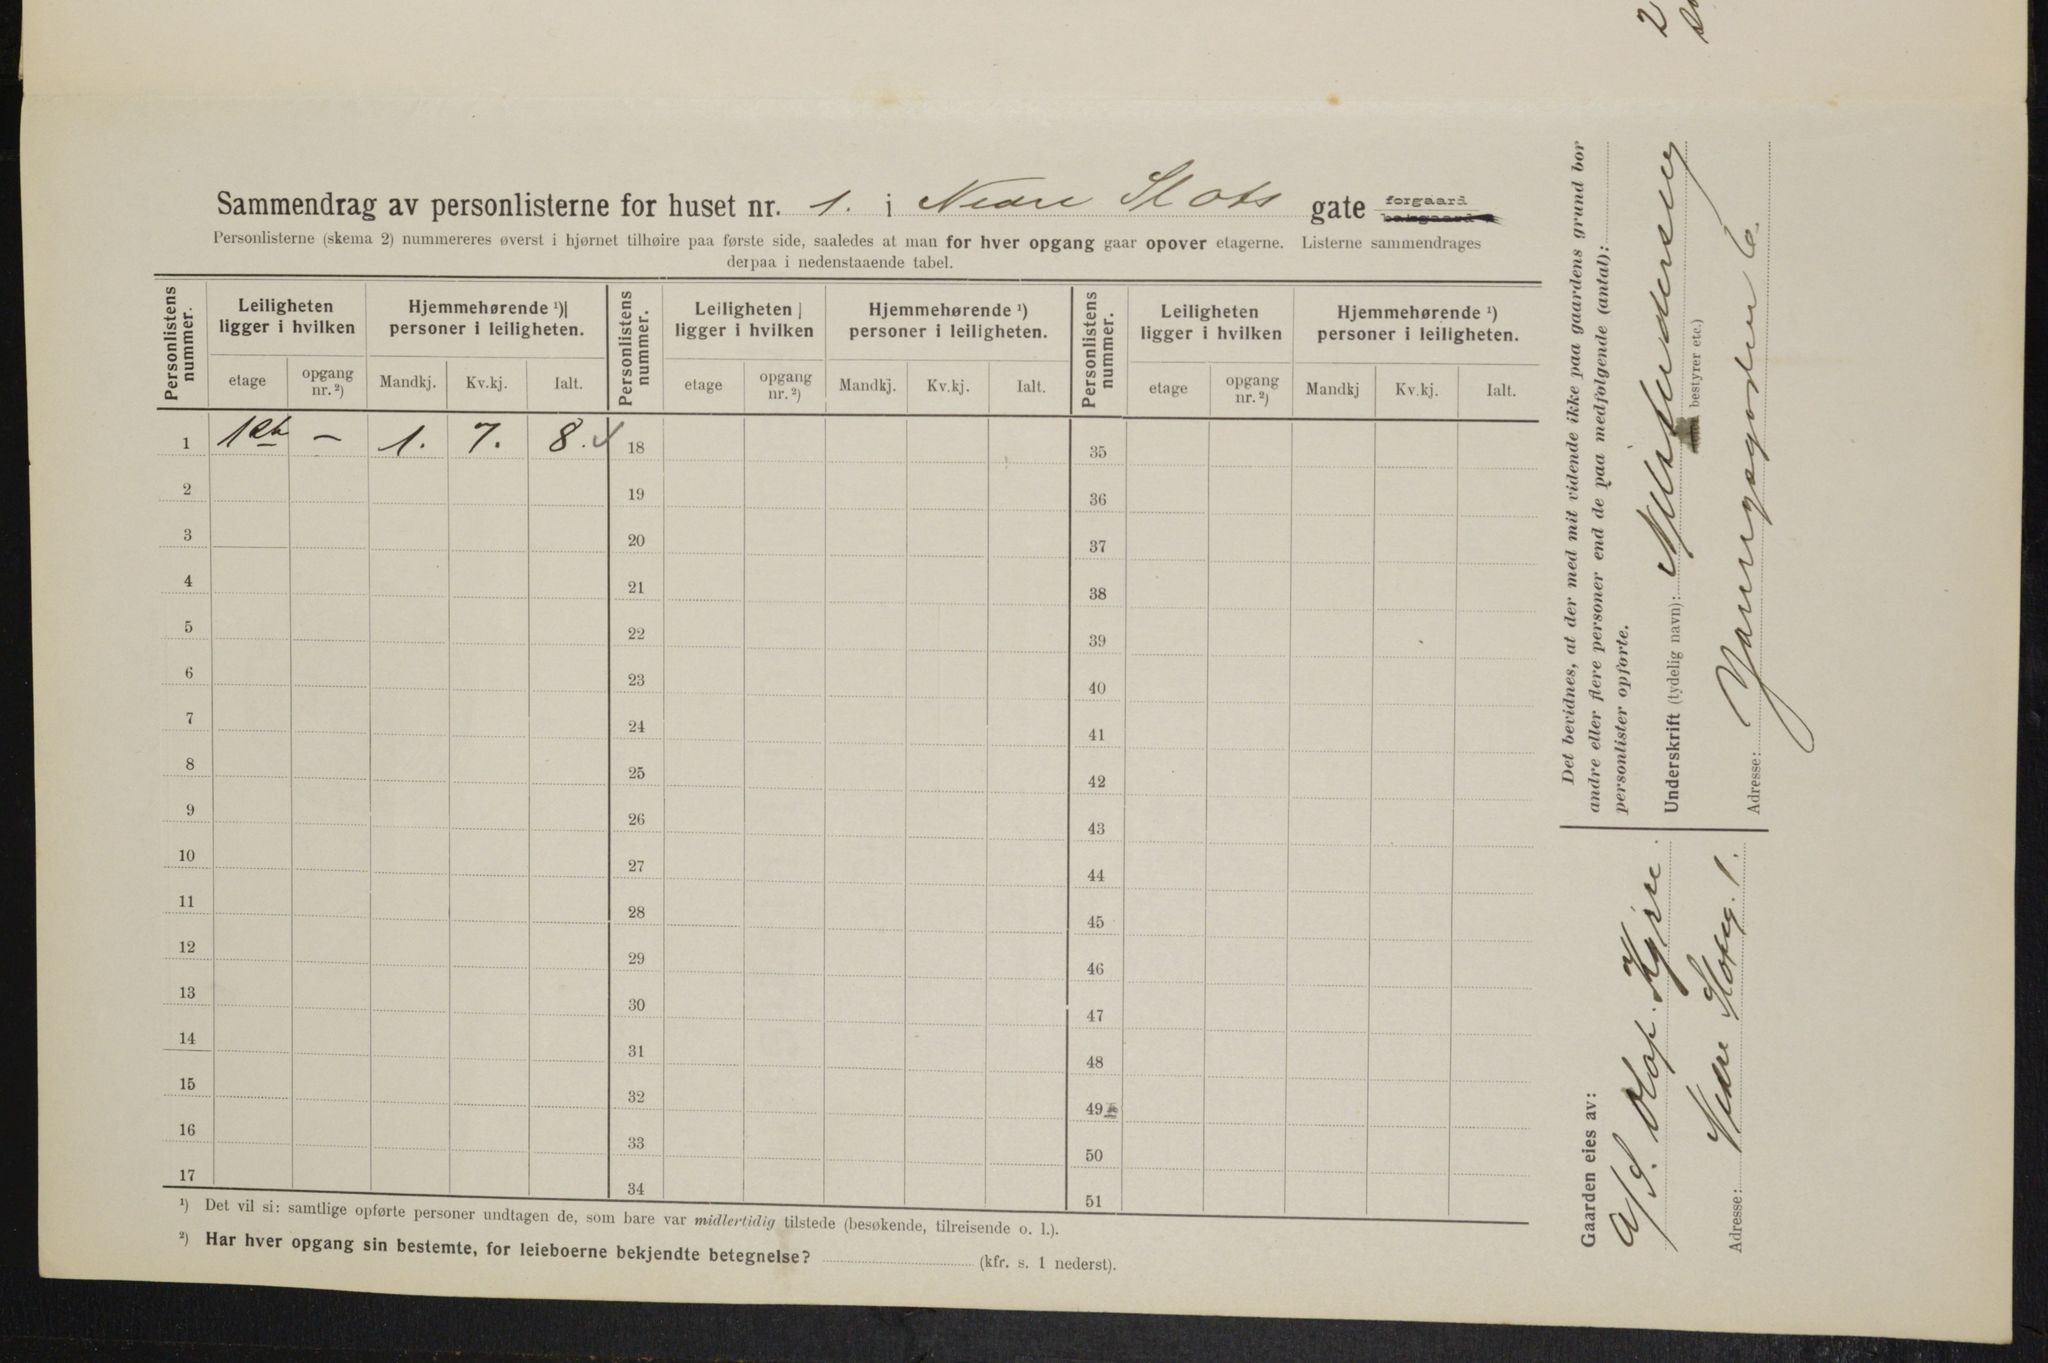 Sammendrag av personlisterne for huset nr. 1. i Nedre Slots gate forgaard
bakgaard
Personlisterne (skema 2) nummereres øverst i hjørnet tilhøire paa første side, saaledes at man for hver opgang gaar opover etagerne. Listerne sammendrages
derpaa i nedenstaaende tabel.
Personlistens nummer. Leiligheten ligger i hvilken Hjemmehørende ¹) personer i leiligheten. Personlistens nummer. Leiligheten ligger i hvilken Hjemmehørende ¹) personer i leiligheten. Personlistens nummer. Leiligheten ligger i hvilken Hjemmehørende ¹) personer i leiligheten.
etage opgang nr. ²) Mandkj. Kv.kj. Ialt. etage opgang nr. ²) Mandkj. Kv.kj. Ialt. etage opgang nr. ²) Mandkj Kv.kj. Ialt.
1 1 – 1. 7. 8. 18 35
2 19 36
3 20 37
4 21 38
5 22 39
6 23 40
7 24 41
8 25 42
9 26 43
10 27 44
11 28 45
12 29 46
13 30 47
14 31 48
15 32 49
16 33 50
17 34 51
¹) Det vil si: samtlige opførte personer undtagen de, som bare var midlertidig tilstede (besøkende, tilreisende o. l.).
²) Har hver opgang sin bestemte, for leieboerne bekjendte betegnelse? (kfr. s. 1 nederst).
Gaarden eies av:
A/S. Hop. Kjire.
Adresse: Nedre Slotsg. 1.
Det bevidnes, at der med mit vidende ikke paa gaardens grund bor
andre eller flere personer end de paa medfølgende (antal):
personlister opførte.
Underskrift (tydelig navn):
bestyrer etc.)
Adresse:
2